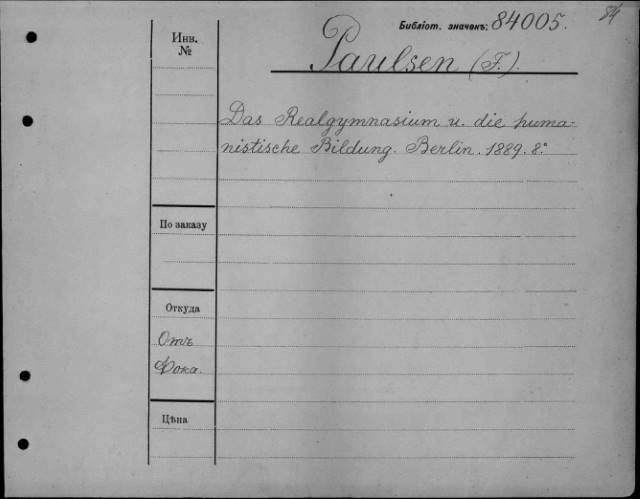 84
Библіот. значекъ: 84005.
Инв.
№
Paulsen (F.).
Das Realgymnasium u. die huma-
nistische Bildung. Berlin. 1889. 8º.
По заказу
Откуда
Отъ
Фока.
Цѣна